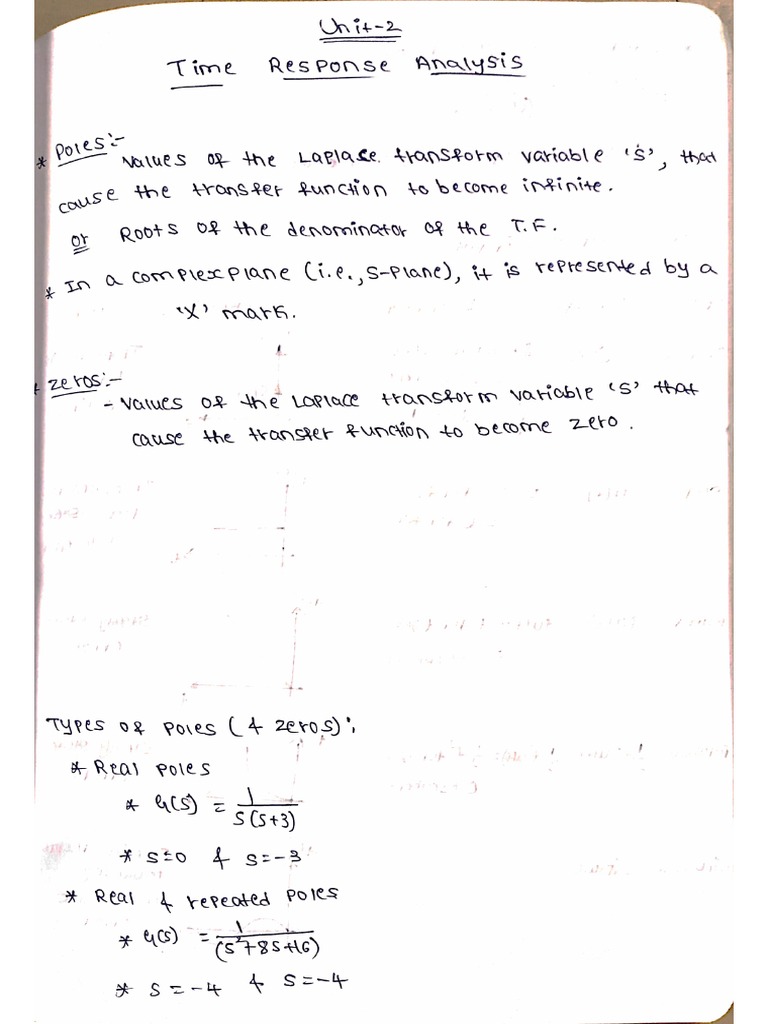 Unit-2
Time Response Analysis
* Poles:-
Values of the Laplace transform variable 's', that
cause the transfer function to become infinite.
or Roots of the denominator of the T.F.
* In a complex plane (i.e., s-plane), it is represented by a
'X' mark.
* Zeros:-
- Values of the Laplace transform variable 's' that
cause the transfer function to become zero.
Types of Poles (& zeros):
* Real poles
* G(s) = 1/(s(s+3))
* s=0 & s=-3
* Real & repeated poles
* G(s) = 1/(s²+8s+16)
* s=-4 & s=-4